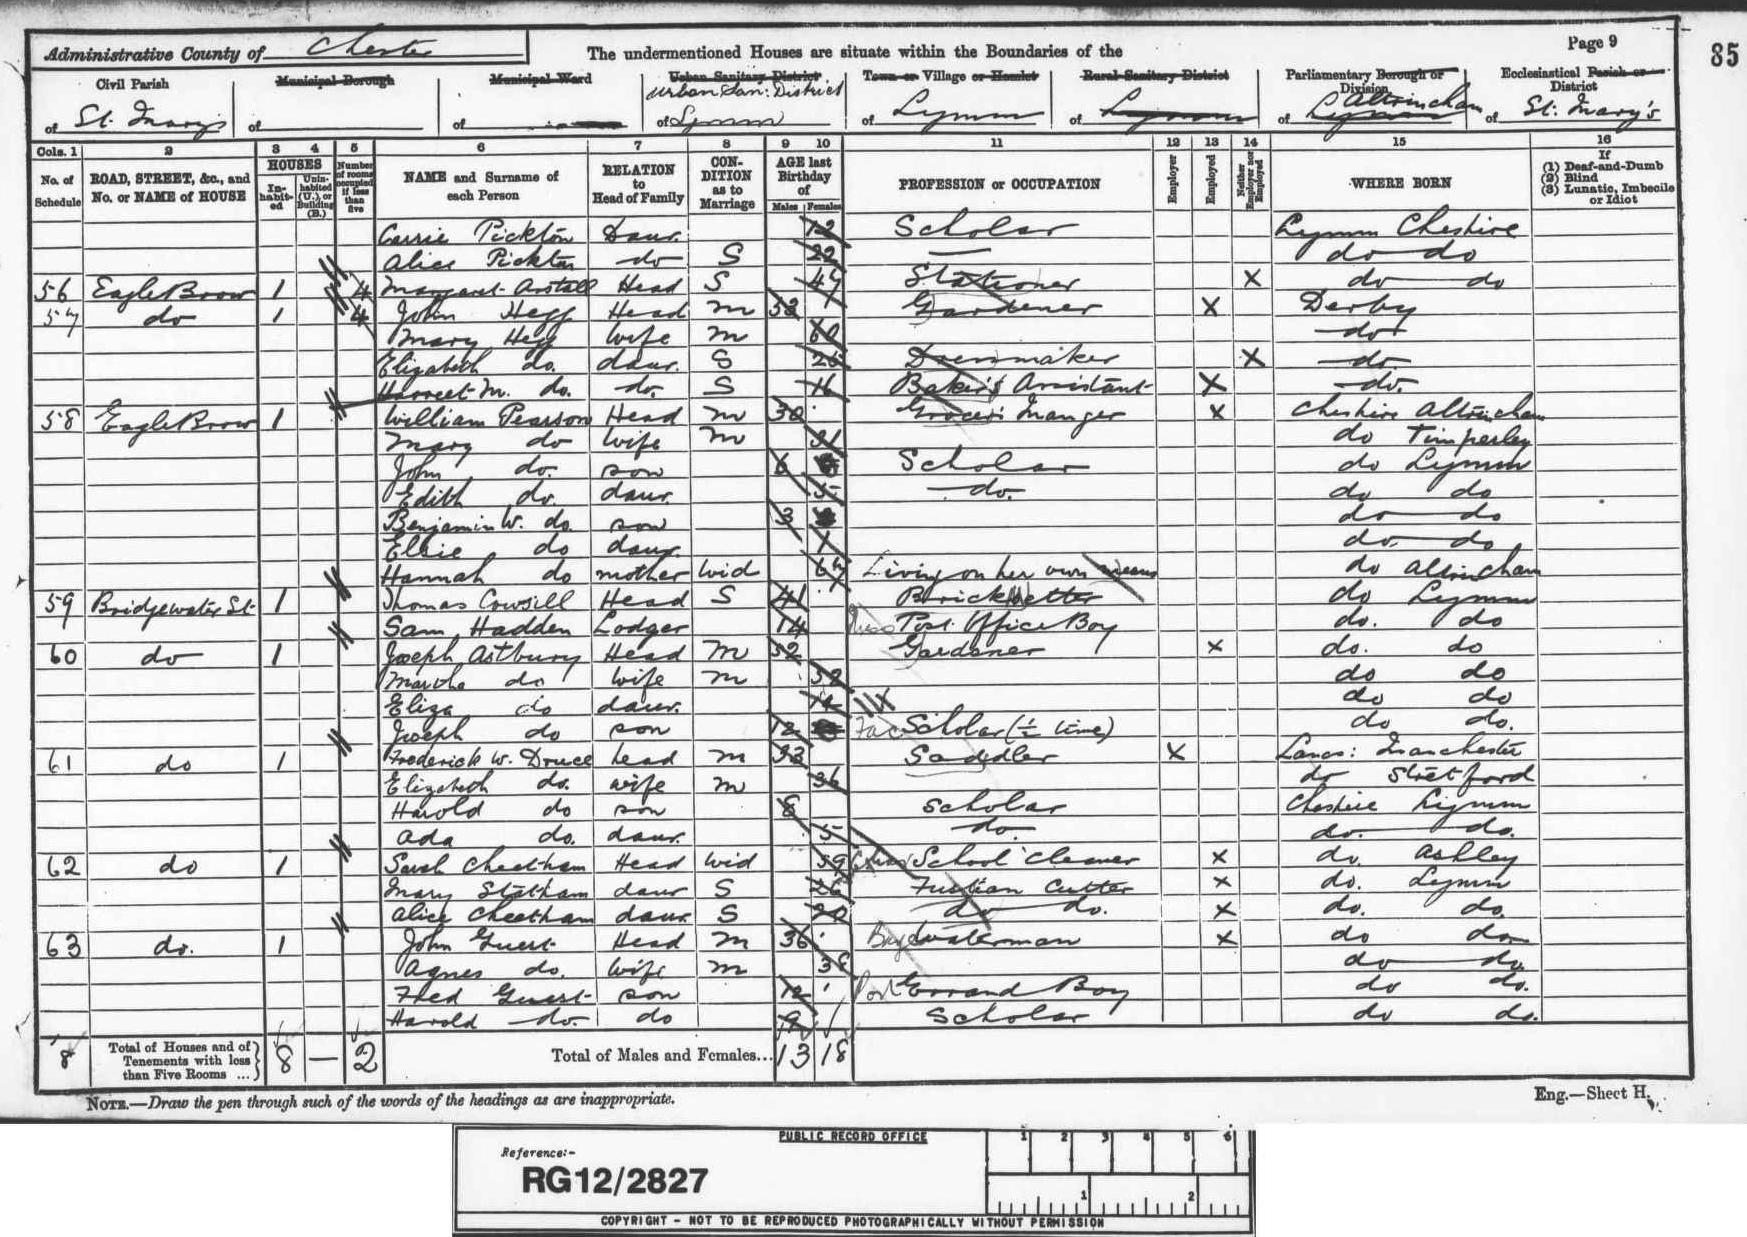 Administrative County of Chester The undermentioned Houses are situate within the Boundaries of the Page 9 85
Civil Parish Municipal Borough Municipal Ward Urban Sanitary District Town or Village or Hamlet Rural Sanitary District Parliamentary Borough or Division Ecclesiastical Parish or District
Urban San: District
of St. Mary's of of of Lymm of Lymm of Lymm of Lymm Altrincham of St. Mary's
Cols. 1 2 3 4 5 6 7 8 9 10 11 12 13 14 15 16
No. of Schedule ROAD, STREET, &c., and No. or NAME of HOUSE HOUSES Inhabited Uninhabited (U.) or Building (B.) Number of rooms occupied if less than five NAME and Surname of each Person RELATION to Head of Family CONDITION as to Marriage AGE last Birthday of Males Females PROFESSION or OCCUPATION Employer Employed Neither Employer nor Employed WHERE BORN If (1) Deaf-and-Dumb (2) Blind (3) Lunatic, Imbecile or Idiot
Carrie Pickton Daur. 12 Scholar Lymm Cheshire
Alice Pickton do S 22 — do do
56 Eagle Brow 1 4 Margaret Head S 49 Stationer X do do
57 do 1 4 John Hegg Head M 53 Gardener X Derby
Mary Hegg Wife M 60 do
Elizabeth do. daur. S 26 Dressmaker X do
Harreet M. do. do. S 16 Baker's Assistant X do.
58 Eagle Brow 1 William Pearson Head M 30 Grocers Manger X Cheshire Altrincham
Mary do Wife M 31 do Timperley
John do. son 6 Scholar do Lymm
Edith do. daur. 5 do. do do
Benjamin W. do. son 3 do do
Elsie do daur 1 do. do
Hannah do mother Wid 64 Living on her own means do Altrincham
59 Bridgewater St. 1 Thomas Cowsill Head S 41 Bricksetter do Lymm
Sam Hadden Lodger 14 Post Office Boy do. do
60 do 1 Joseph Astbury Head M 52 Gardener X do. do
Martha do wife M 52 do do
Eliza do daur. 14 do do
Joseph do son 12 Scholar (½ time) do do.
61 do 1 Frederick W. Druce head M 33 Saddler X Lancs: Manchester
Elizabeth do. wife M 36 do Stretford
Harold do son 8 Scholar Cheshire Lymm
Ada do. daur. 5 do. do. do.
62 do 1 Sarah Cheetham Head Wid 59 School Cleaner X do. Ashley
Mary Statham daur S 26 Fustian Cutter X do. Lymm
Alice Cheetham daur. S 20 do do. X do. do.
63 do. 1 John Guest Head M 36 Barge Waterman X do do
Agnes do. Wife M 38 do do.
Fred Guest son 12 Errand Boy do do.
Harold do. do 9 Scholar do do.
8 Total of Houses and of Tenements with less than Five Rooms ... 8 — 2 Total of Males and Females... 13 18
NOTE.—Draw the pen through such of the words of the headings as are inappropriate. Eng.—Sheet H.
PUBLIC RECORD OFFICE 1 2 3 4 5 6
Reference:-
RG12/2827
1 2
COPYRIGHT - NOT TO BE REPRODUCED PHOTOGRAPHICALLY WITHOUT PERMISSION